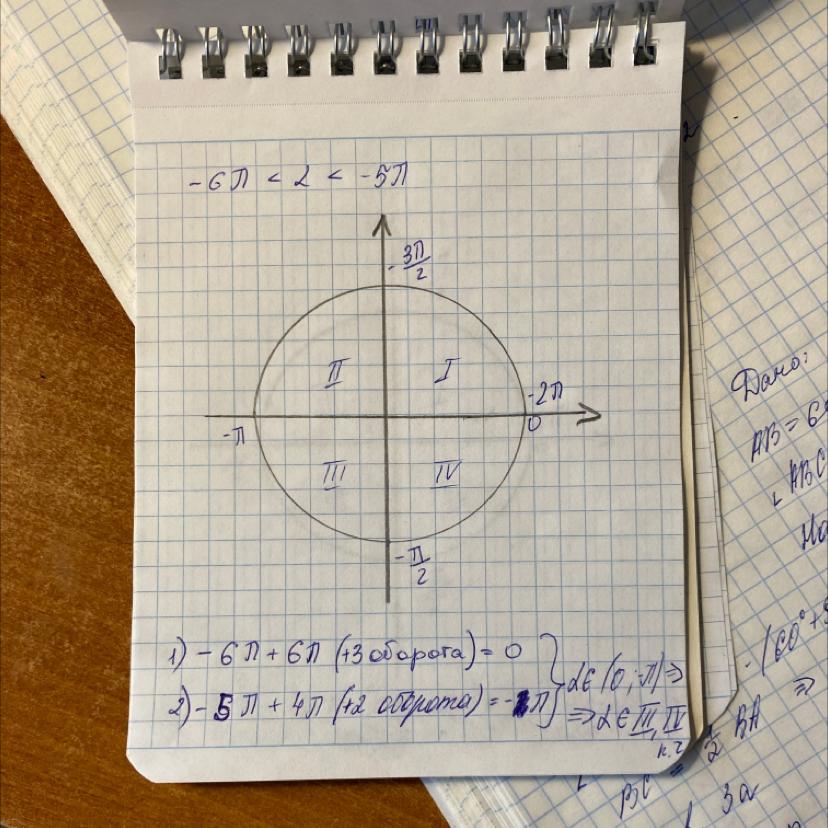 -6π < α < -5π
-3π/2
II I
-2π
-π 0
III IV
-π/2
1) -6π + 6π (+3 оборота) = 0
2) -5π + 4π (+2 оборота) = -π
} α ∈ (0; -π) ⇒
⇒ α ∈ III, IV
к.ч
Дано:
AB = 6
∠ABC
(60° +
⇒
1/2 BA
BC =
3a